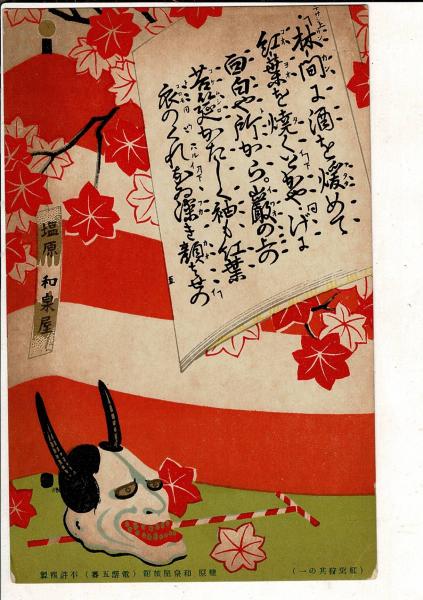 林間に酒を煖めて
紅葉を焼くとかや、げに
面白や所から。巌の上の
苔筵かたしく袖も紅葉
衣のくれなゐ深き顔ばせの
塩原 和泉屋
（紅葉狩其の一）
塩原 和泉屋旅館（電話五番）不許複製